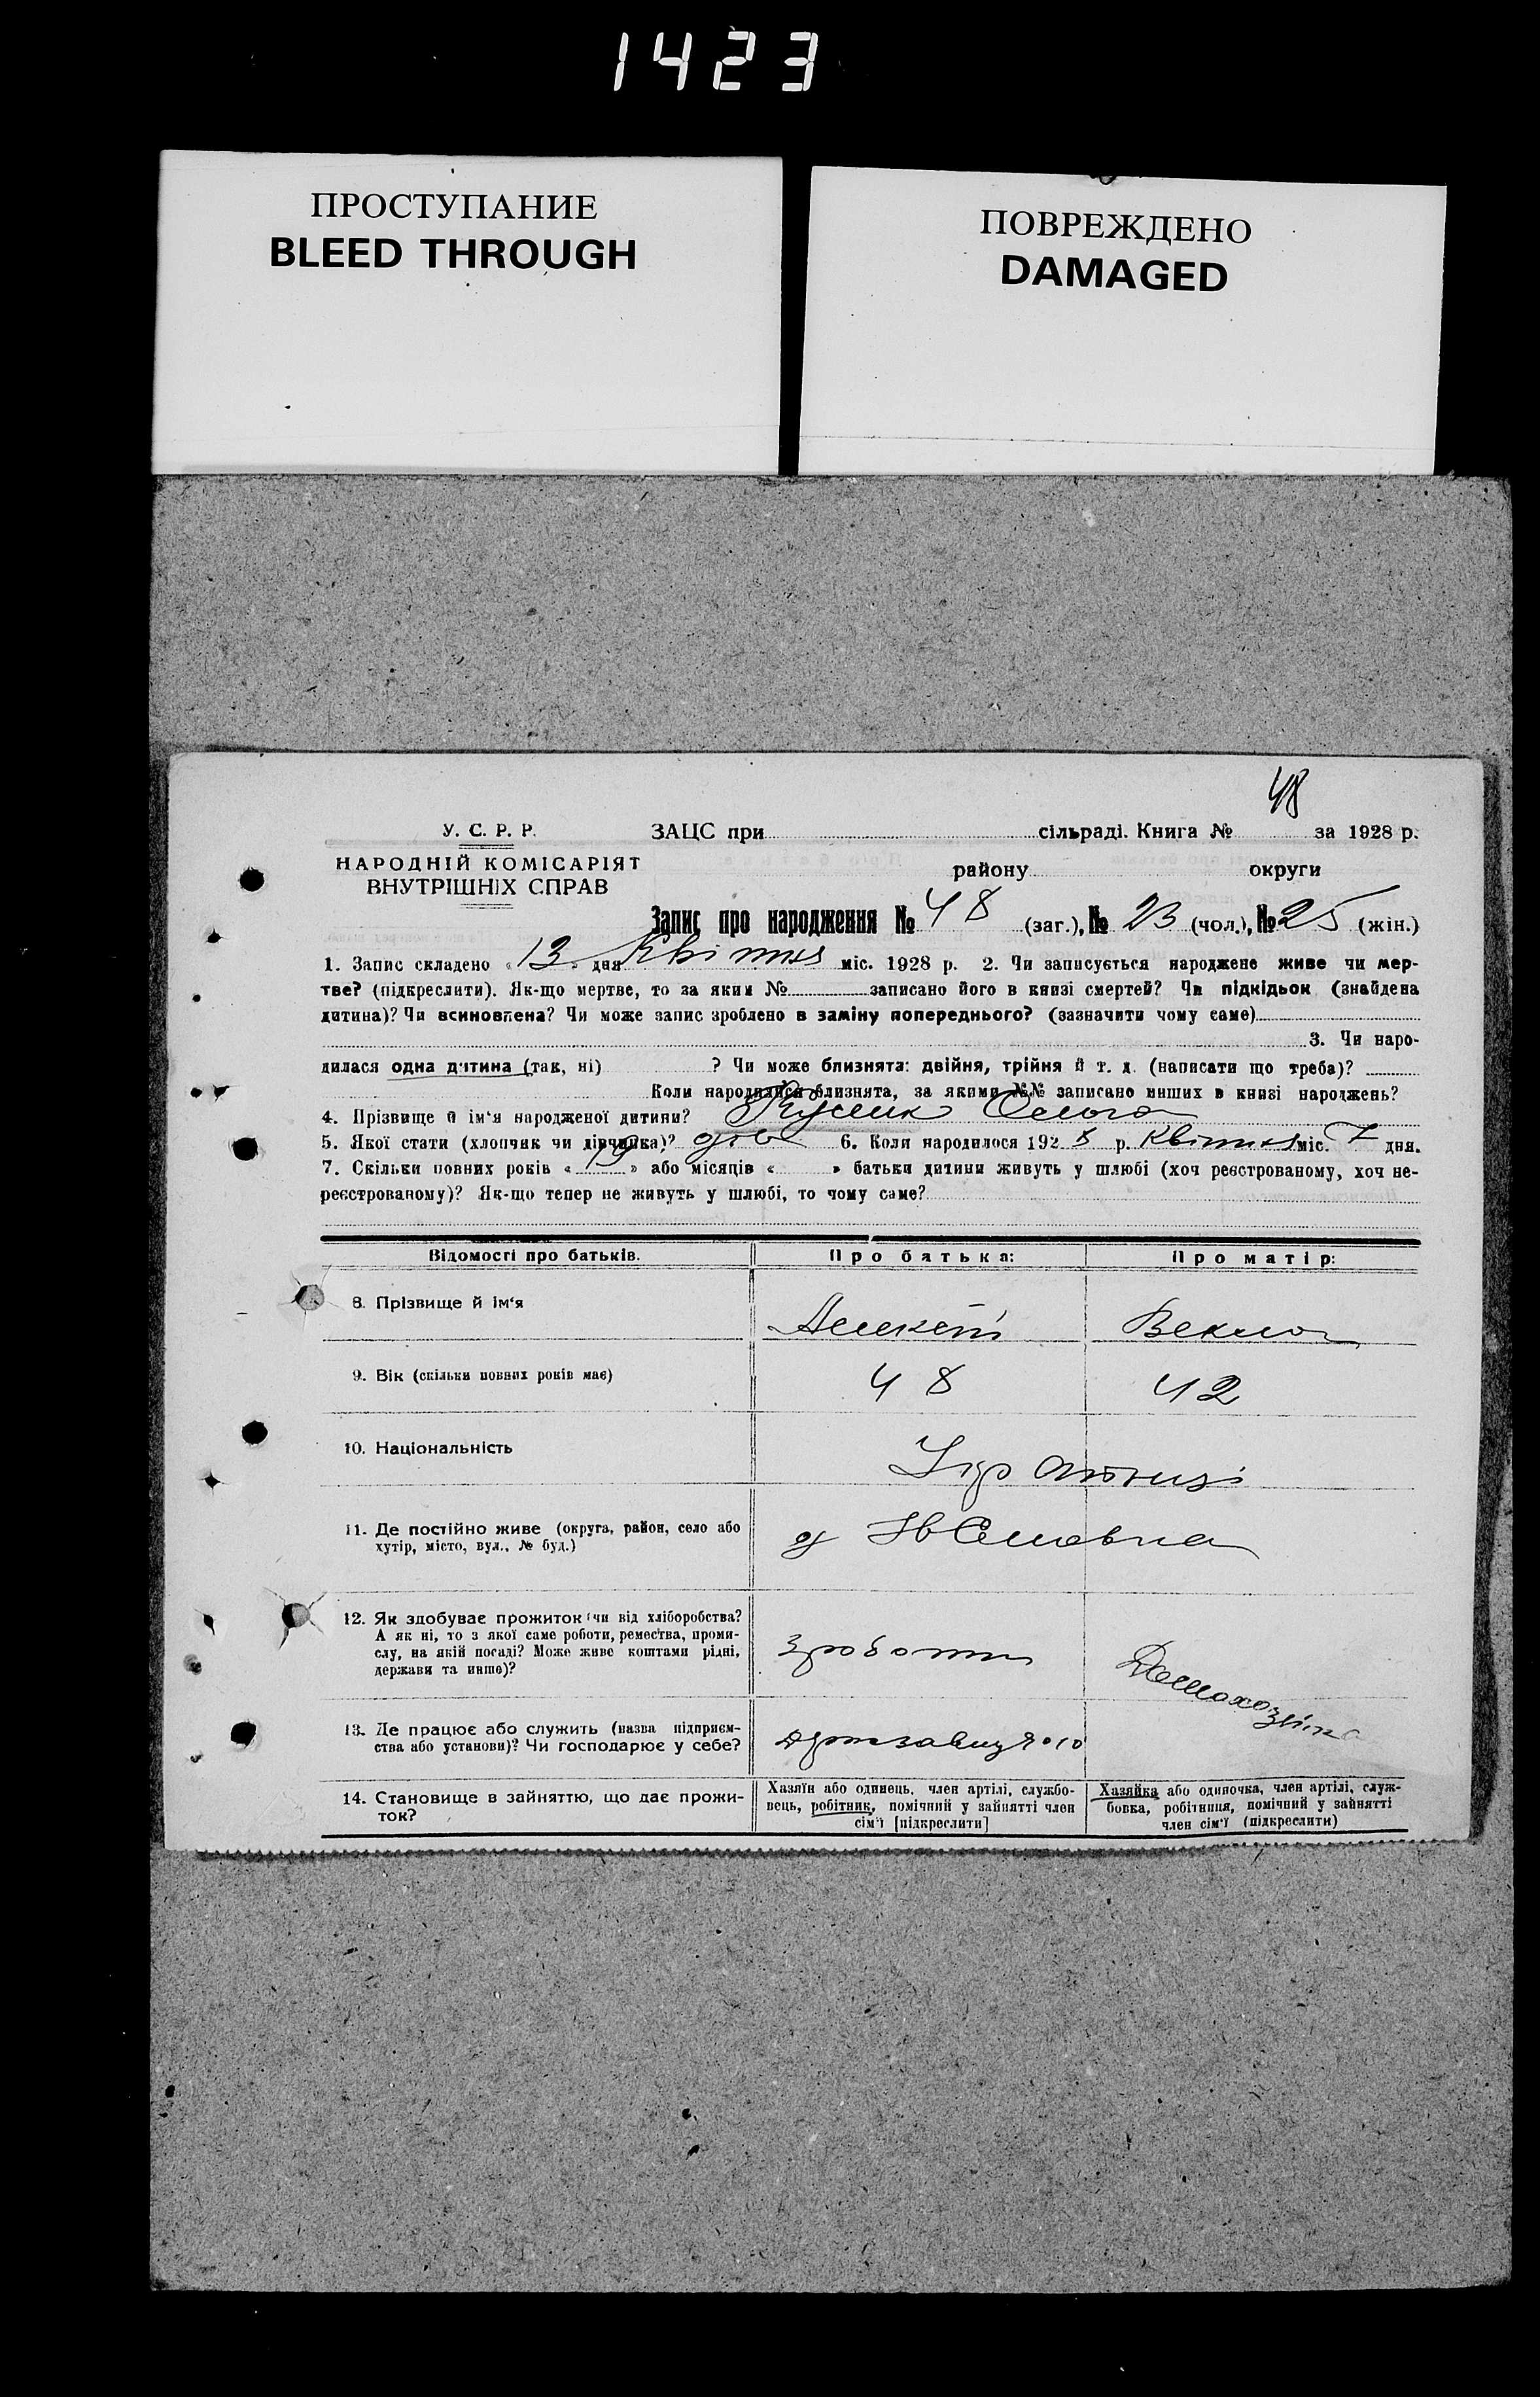 1423
ПРОСТУПАНИЕ
BLEED THROUGH
ПОВРЕЖДЕНО
DAMAGED
48
У. С. Р. Р.
НАРОДНІЙ КОМІСАРІЯТ
ВНУТРІШНІХ СПРАВ
ЗАЦС при сільраді. Книга № за 1928 р.
району округи
Запис про народження № 48 (заг.), № 23 (чол.), № 25 (жін.)
1. Запис складено « 13 » дня Квітня міс. 1928 р. 2. Чи записується народжене живе чи мер-
тве? (підкреслити). Як-що мертве, то за яким № записано його в книзі смертей? Чи підкідьок (знайдена
дитина)? Чи всиновлена? Чи може запис зроблено в заміну попереднього? (зазначити чому саме)
3. Чи наро-
дилася одна дитина (так, ні) ? Чи може близнята: двійня, трійня й т. д. (написати що треба)?
Коли народилися близнята, за якими №№ записано инших в книзі народжень?
4. Прізвище й ім'я народженої дитини? Ольга
5. Якої стати (хлопчик чи дівчинка)? дів 6. Коли народилося 1928 р. Квітня міс. 7 дня.
7. Скільки повних років « 19 » або місяців « » батьки дитини живуть у шлюбі (хоч реєстрованому, хоч не-
реєстрованому)? Як-що тепер не живуть у шлюбі, то чому саме?
Відомості про батьків. Про батька: Про матір:
8. Прізвище й ім'я Векла
9. Вік (скільки повних років має) 48 42
10. Національність Українці
11. Де постійно живе (округа, район, село або
хутір, місто, вул., № буд.)
12. Як здобуває прожиток (чи від хліборобства?
А як ні, то з якої саме роботи, ремества, проми-
слу, на якій посаді? Може живе коштами рідні,
держави та инше)?
з роботи
Домохозяйка
13. Де працює або служить (назва підприєм-
ства або установи)? Чи господарює у себе?
14. Становище в зайняттю, що дає прожи-
ток?
Хазяїн або одинець, член артілі, службо-
вець, робітник, помічний у зайнятті член
сім'ї [підкреслити]
Хазяйка або одиночка, член артілі, служ-
бовка, робітниця, помічний у зайнятті
член сім'ї (підкреслити)